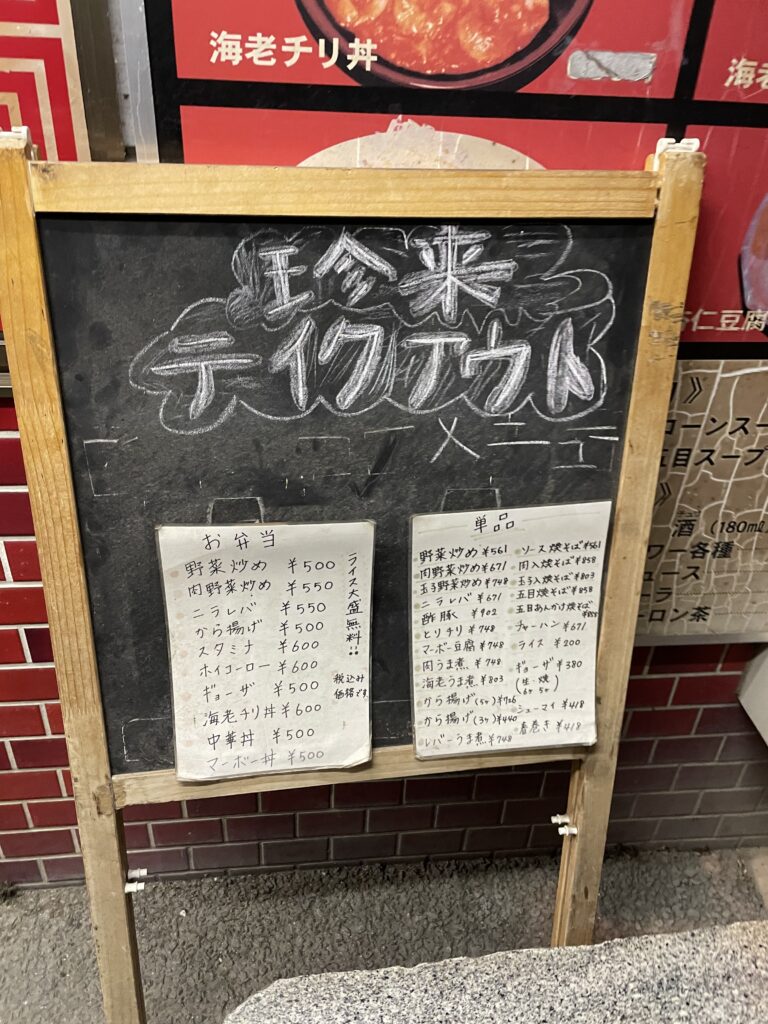 海老チリ丼
海老
仁豆腐
珍来
テイクアウト
メニュー
お弁当
野菜炒め ¥500
肉野菜炒め ¥550
ニラレバ ¥550
から揚げ ¥500
スタミナ ¥600
ホイコーロー ¥600
ギョーザ ¥500
海老チリ丼 ¥600
中華丼 ¥500
マーボー丼 ¥500
ライス大盛無料!!
税込み
価格です
単品
野菜炒め ¥561
肉野菜炒め ¥671
玉子野菜炒め ¥748
ニラレバ ¥671
酢豚 ¥902
とりチリ ¥748
マーボー豆腐 ¥748
肉うま煮 ¥748
海老うま煮 ¥803
から揚げ(5ヶ) ¥726
から揚げ(3ヶ) ¥440
レバーうま煮 ¥748
ソース焼そば ¥561
肉入焼そば ¥858
玉子入焼そば ¥803
五目焼そば ¥858
五目あんかけ焼そば ¥858
チャーハン ¥671
ライス ¥200
ギョーザ ¥380
(生・焼
6ヶ 5ヶ)
シューマイ ¥418
春巻き ¥418
》
コーンスー
五目スープ
》
酒(180mℓ)
ワー各種
ュース
ーラ
ーロン茶